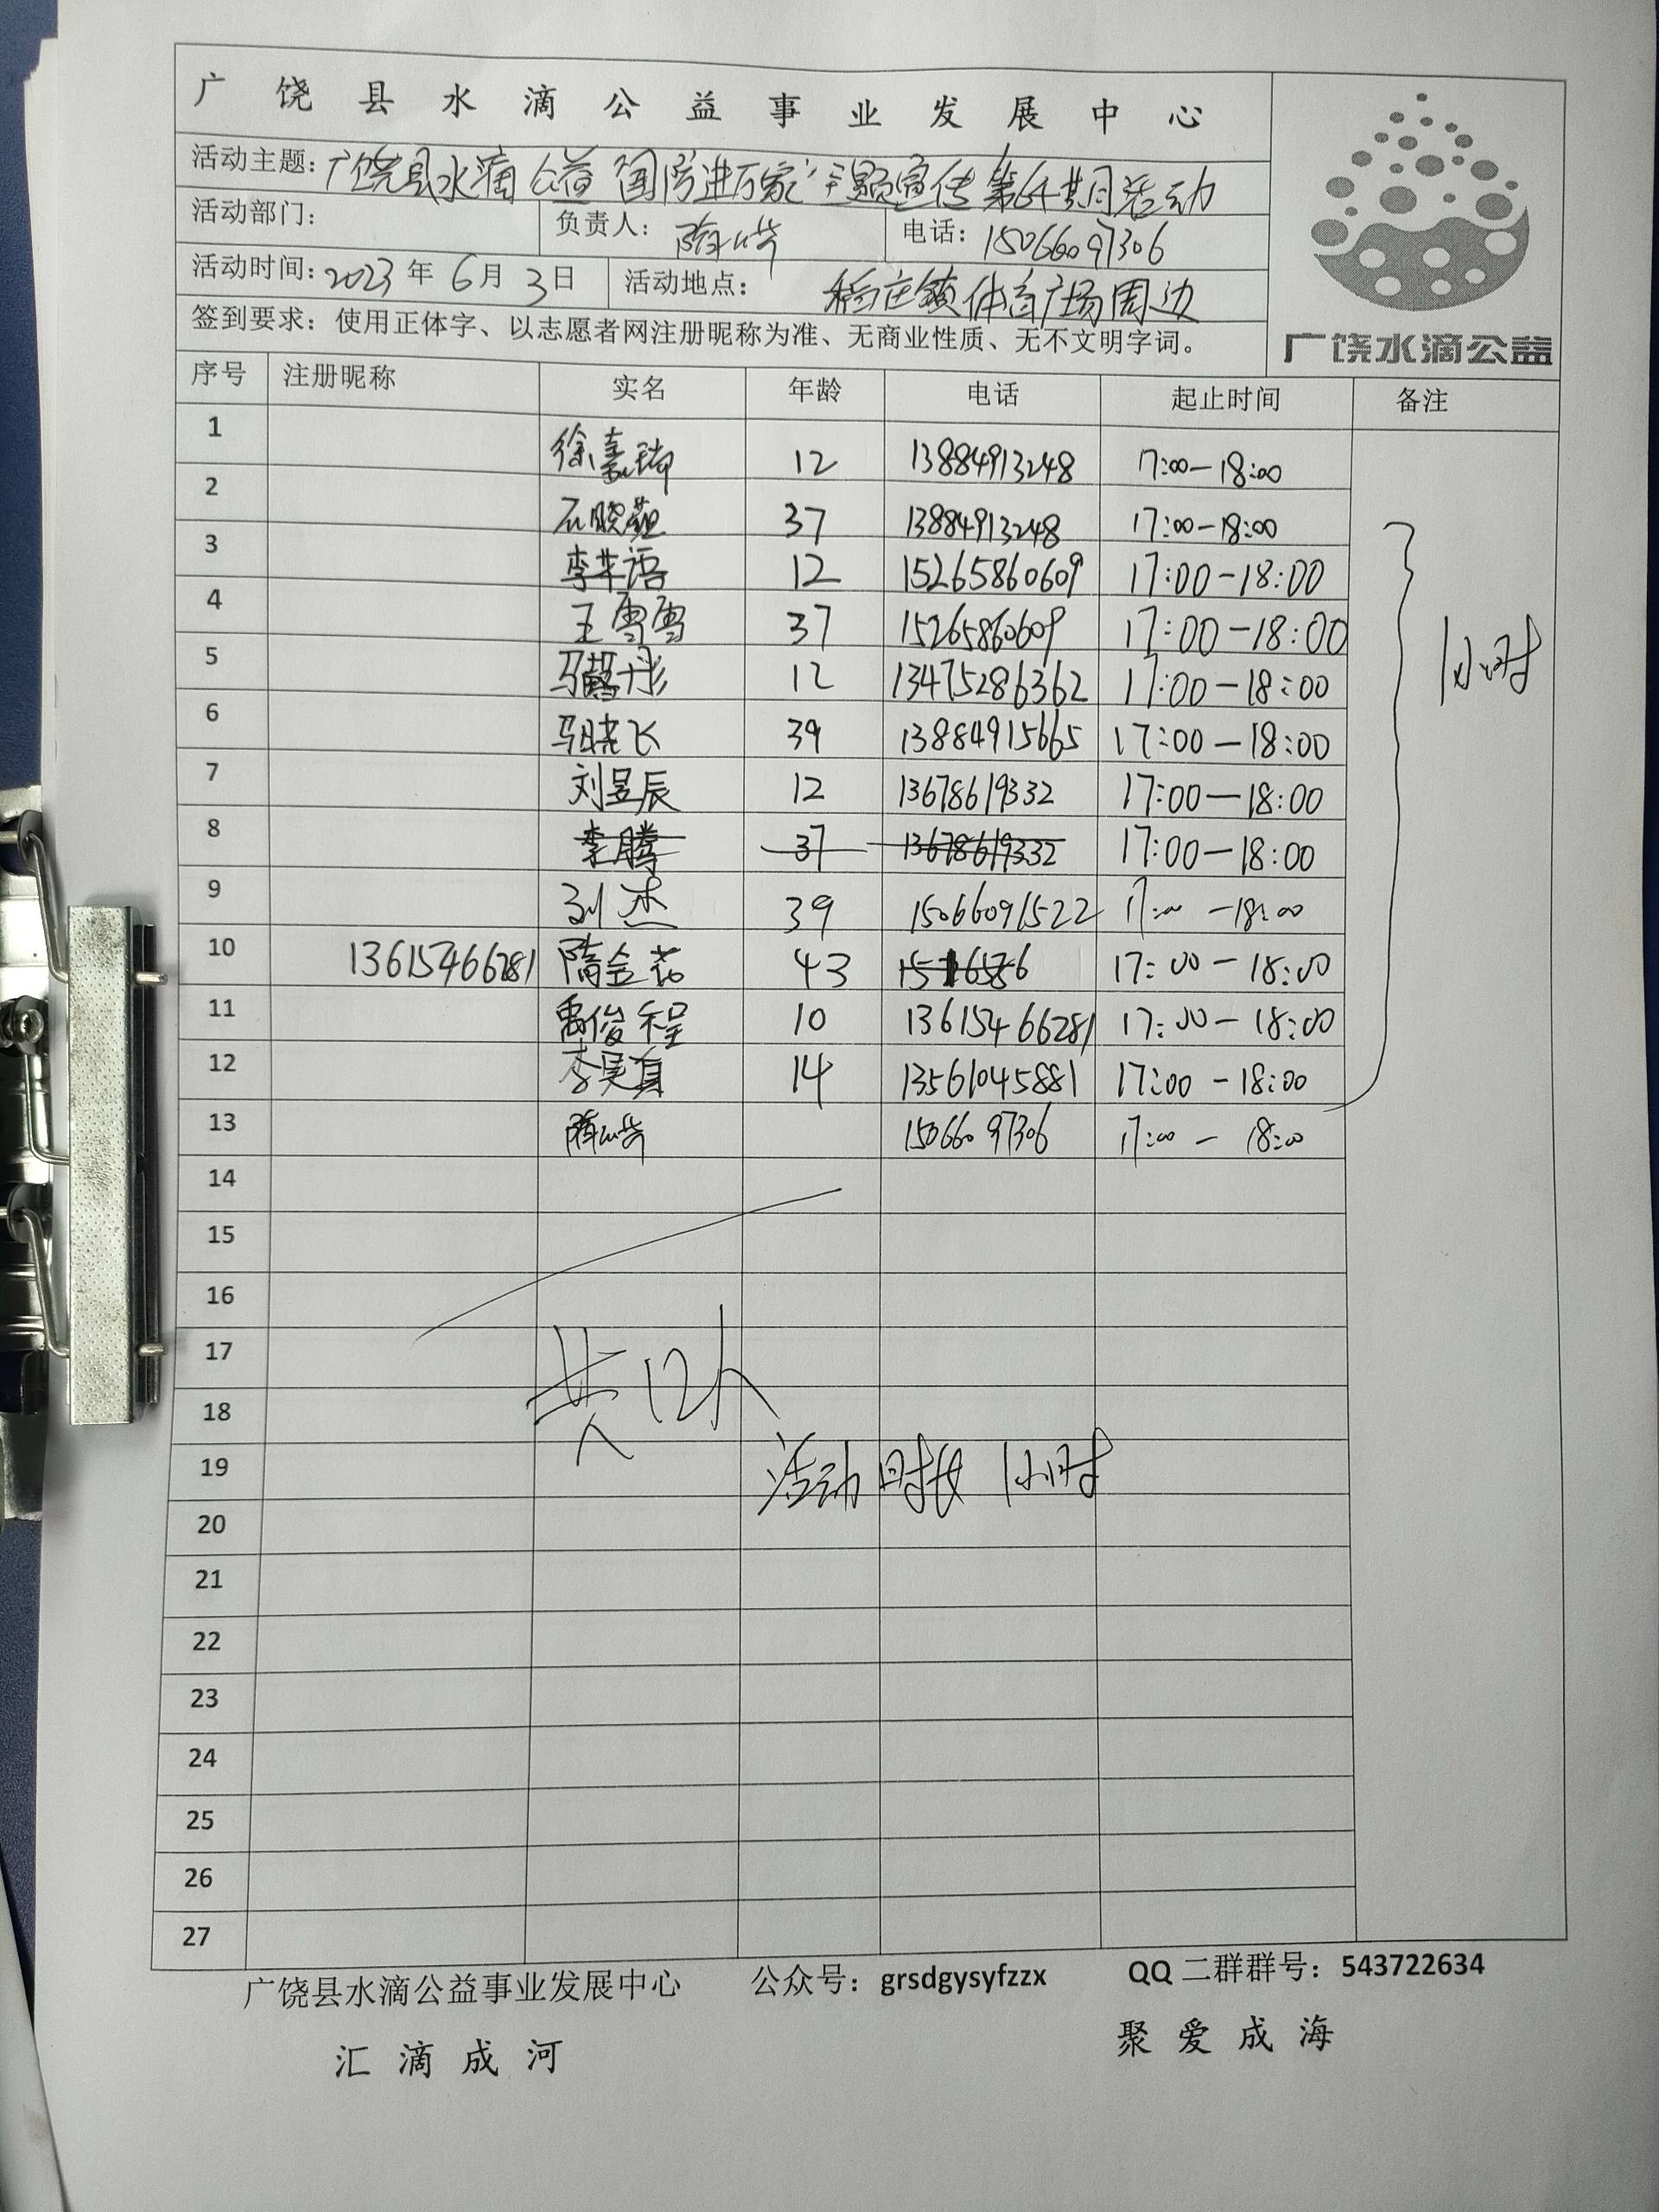 广饶县水滴公益事业发展中心
活动主题：广饶县水滴公益“国防进万家”主题宣传 期活动
活动部门： 负责人：隋 电话：15066097306
活动时间：2023年6月3日 活动地点：稻庄镇体育广场周边
签到要求：使用正体字、以志愿者网注册昵称为准、无商业性质、无不文明字词。
广饶水滴公益
序号 注册昵称 实名 年龄 电话 起止时间 备注
1 徐嘉瑞 12 13884913248 17:00-18:00
2 石晓燕 37 13884913248 17:00-18:00
3 李芊语 12 15265860609 17:00-18:00
4 王雪雪 37 15265860609 17:00-18:00
1小时
5 马馨彤 12 13475286362 17:00-18:00
6 马晓飞 39 13884915665 17:00-18:00
7 刘昱辰 12 13678619332 17:00-18:00
8 李腾 37 13678619332 17:00-18:00
9 刘杰 39 15066091522 17:00-18:00
10 13615466281 隋金花 43 17:00-18:00
11 禹俊程 10 13615466281 17:00-18:00
12 李昊真 14 13561045881 17:00-18:00
13 隋 15066097306 17:00-18:00
14
15
16
17
共12人
18
19 活动时长1小时
20
21
22
23
24
25
26
27
广饶县水滴公益事业发展中心 公众号：grsdgysyfzzx QQ二群群号：543722634
汇滴成河 聚爱成海